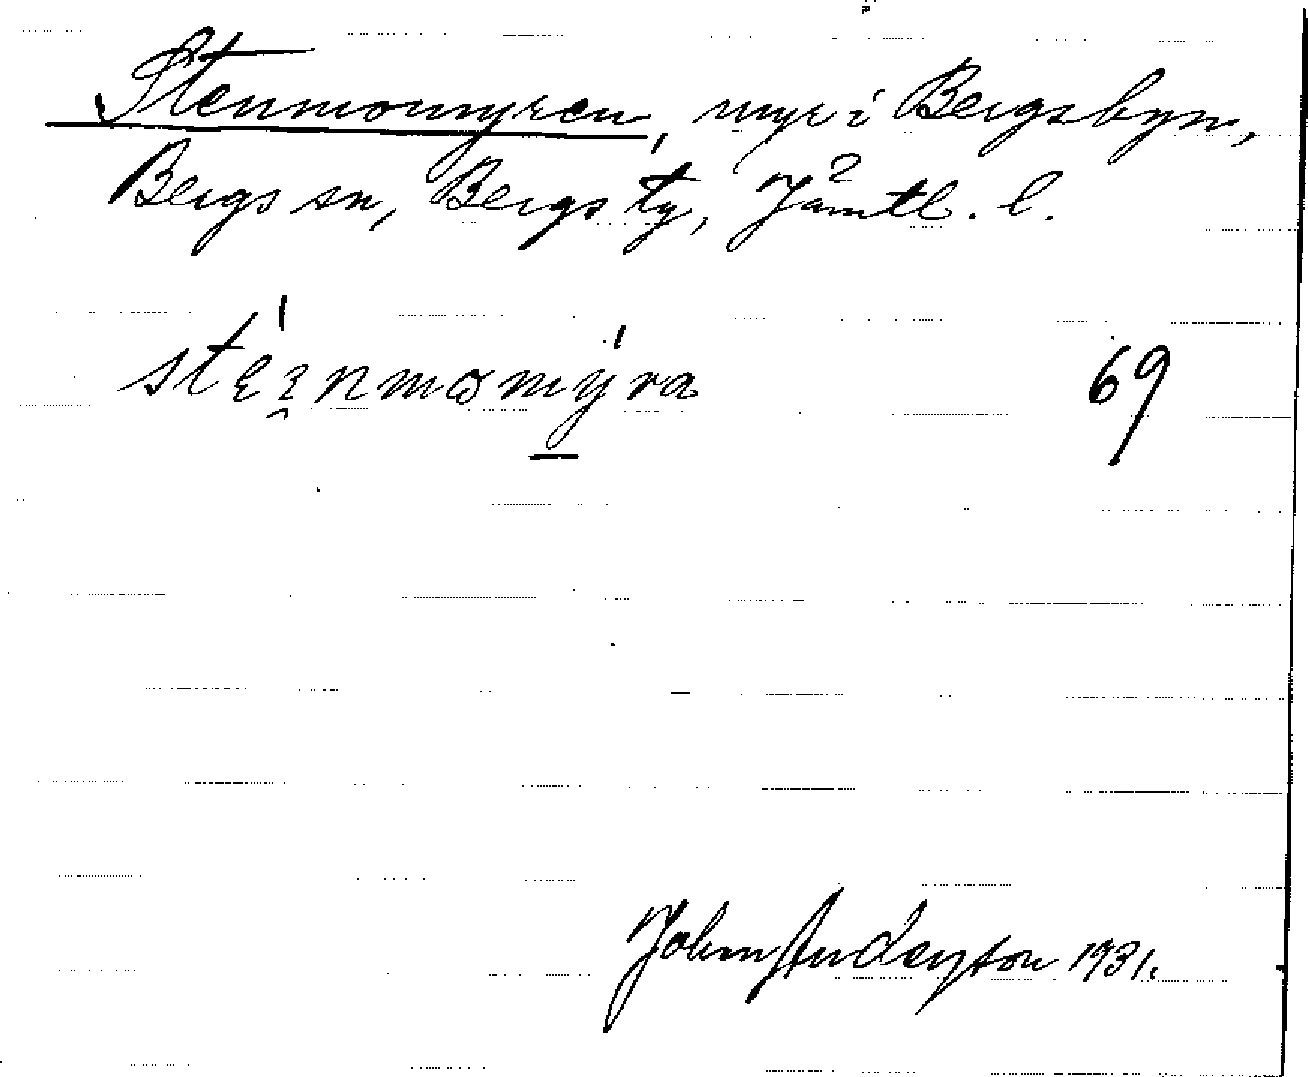 Stenmomyren, myr i Bergsbyn,
Bergs sn, Bergs tg, Jämtl. l.
stéinmomýra 69
John Anderzson 1931.